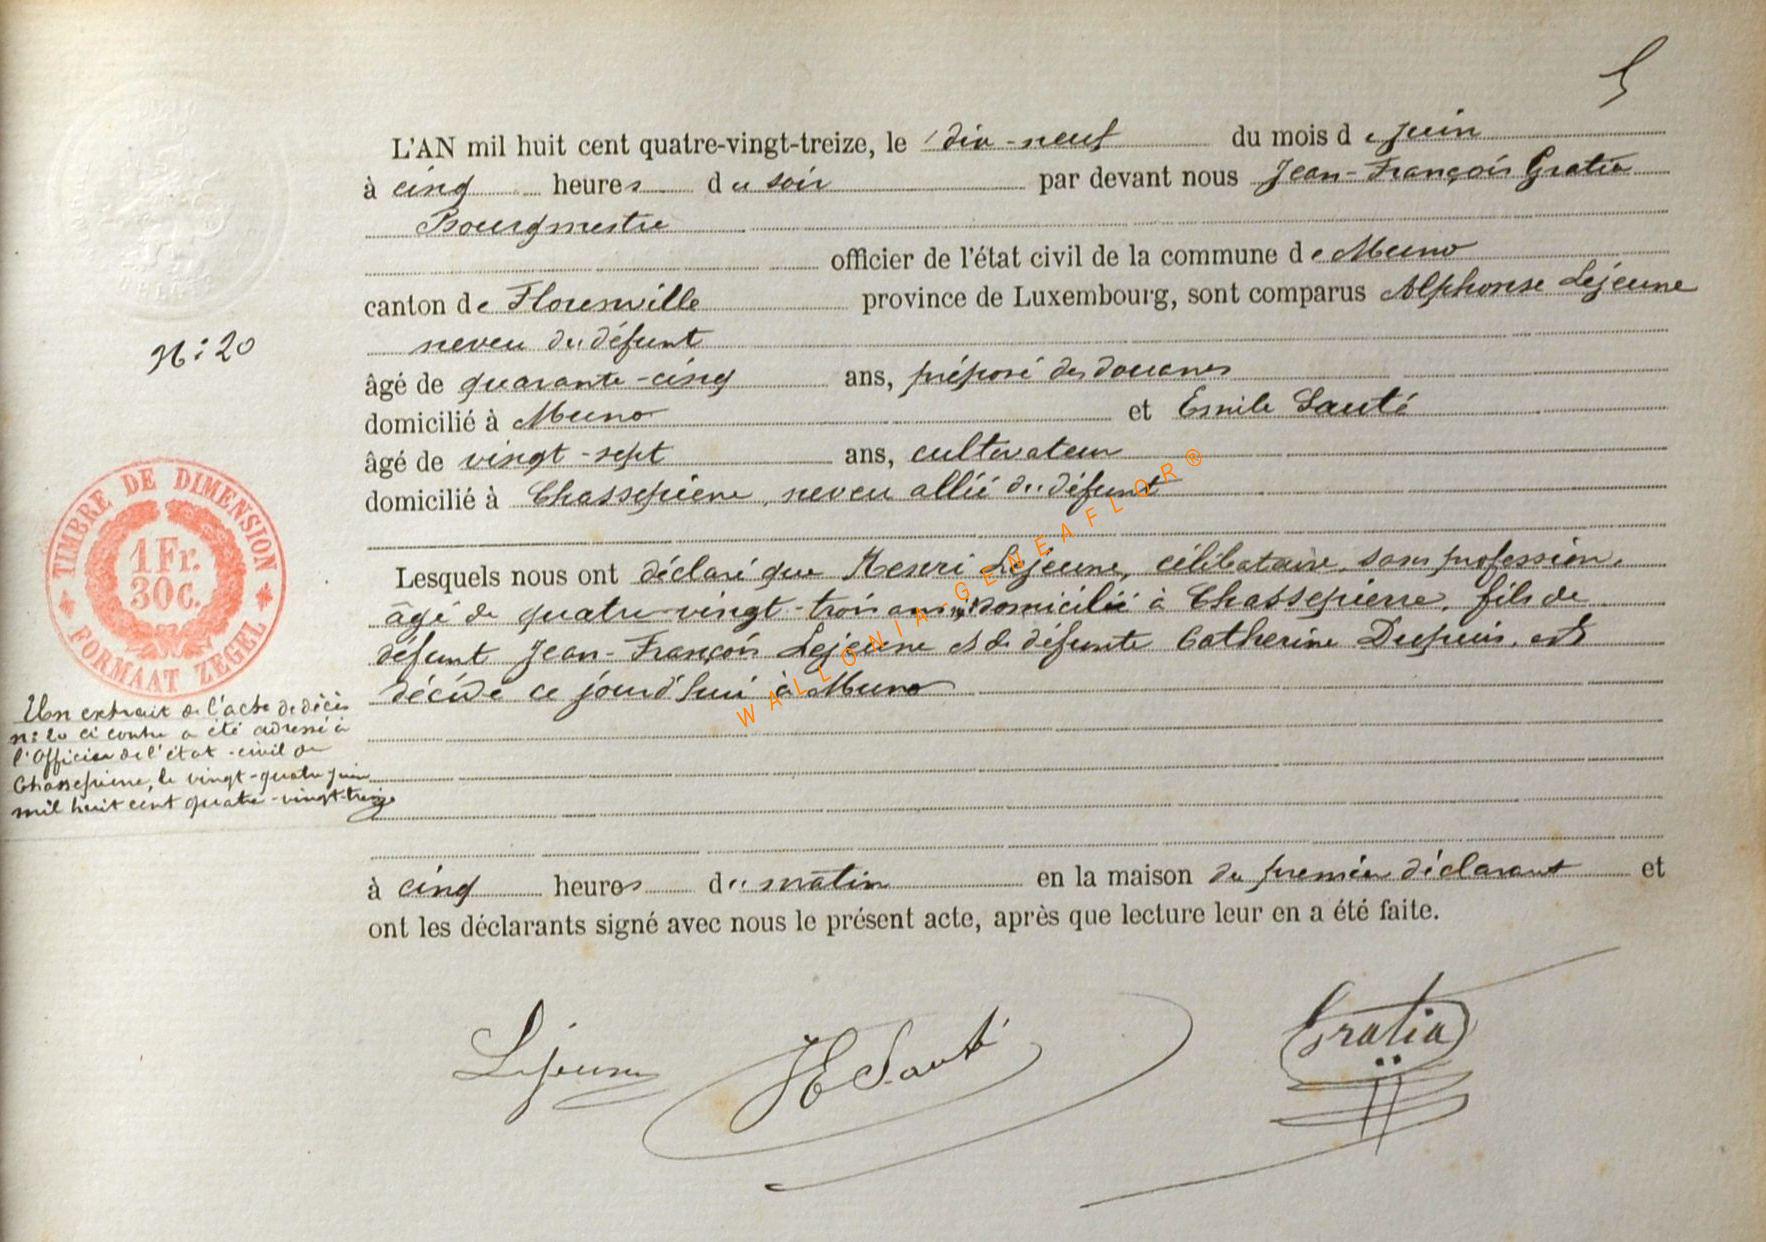 5
L'AN mil huit cent quatre-vingt-treize, le dix-neuf du mois de juin
à cinq heures du soir par devant nous Jean-François Gratia
Bourgmestre
officier de l'état civil de la commune de Muno
canton de Florenville province de Luxembourg, sont comparus Alphonse Lejeune
neveu du défunt
N: 20
âgé de quarante-cinq ans, préposé des douanes
domicilié à Muno et Emile Sauté
âgé de vingt-sept ans, cultivateur
domicilié à Chassepierre, neveu allié du défunt
TIMBRE DE DIMENSION
1 Fr.
30 C.
FORMAAT ZEGEL
Lesquels nous ont déclaré que Henri Lejeune, célibataire, sans profession,
âgé de quatre-vingt-trois ans, domicilié à Chassepierre, fils de
défunt Jean-François Lejeune et de défunte Catherine Dupuis, est
décédé ce jourd'hui à Muno
WALLONIA-GENEAFLOR®
Un extrait de l'acte de décès
n: 20 ci contre a été adressé à
l'Officier de l'état-civil de
Chassepierre, le vingt-quatre juin
mil huit cent quatre-vingt-treize
à cinq heures du matin en la maison du premier déclarant et
ont les déclarants signé avec nous le présent acte, après que lecture leur en a été faite.
Lejeune HE Sauté Gratia